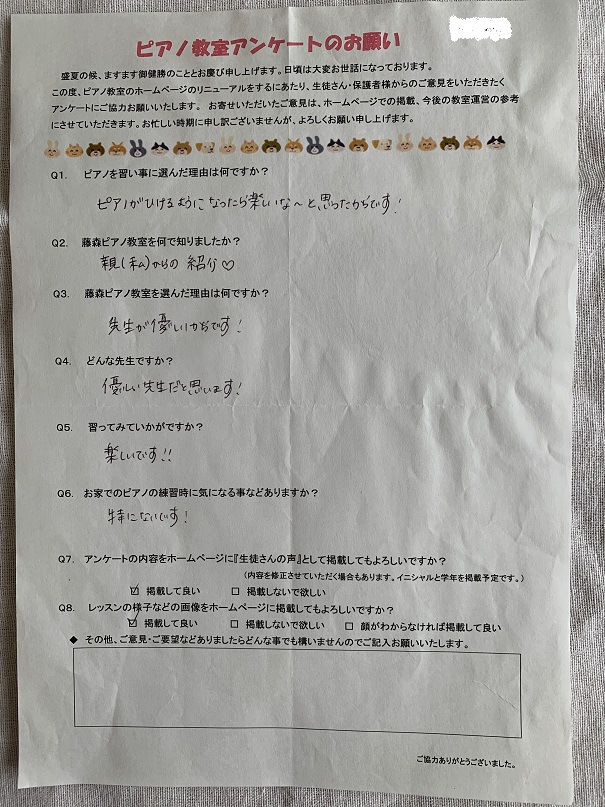 ピアノ教室アンケートのお願い
盛夏の候、ますます御健勝のこととお慶び申し上げます。日頃は大変お世話になっております。
この度、ピアノ教室のホームページのリニューアルをするにあたり、生徒さん・保護者様からのご意見をいただきたく
アンケートにご協力お願いいたします。 お寄せいただいたご意見は、ホームページでの掲載、今後の教室運営の参考
にさせていただきます。お忙しい時期に申し訳ございませんが、よろしくお願い申し上げます。
Q1. ピアノを習い事に選んだ理由は何ですか?
ピアノがひけるようになったら楽しいな〜と思ったからです!
Q2. 藤森ピアノ教室を何で知りましたか?
親(私)からの紹介♡
Q3. 藤森ピアノ教室を選んだ理由は何ですか?
先生が優しいからです!
Q4. どんな先生ですか?
優しい先生だと思います!
Q5. 習ってみていかがですか?
楽しいです!!
Q6. お家でのピアノの練習時に気になる事などありますか?
特にないです!
Q7. アンケートの内容をホームページに『生徒さんの声』として掲載してもよろしいですか?
(内容を修正させていただく場合もあります。イニシャルと学年を掲載予定です。)
☑ 掲載して良い □ 掲載しないで欲しい
Q8. レッスンの様子などの画像をホームページに掲載してもよろしいですか?
☑ 掲載して良い □ 掲載しないで欲しい □ 顔がわからなければ掲載して良い
◆ その他、ご意見・ご要望などありましたらどんな事でも構いませんのでご記入お願いいたします。
ご協力ありがとうございました。